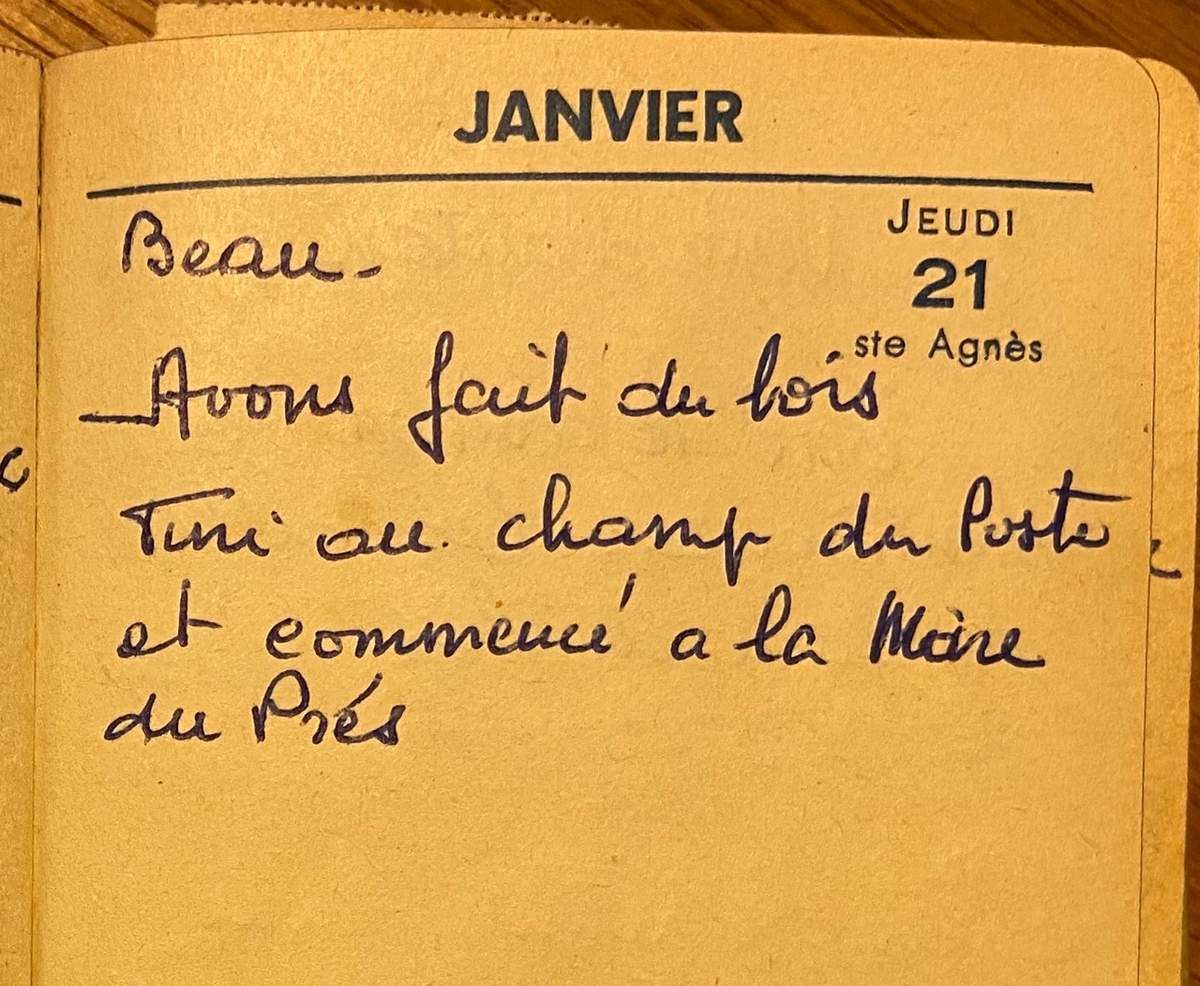 JANVIER
JEUDI
21
ste Agnès
Beau -
Avons fait du bois
Fini au champ du Poste
et commencé a la Mare
du Prés